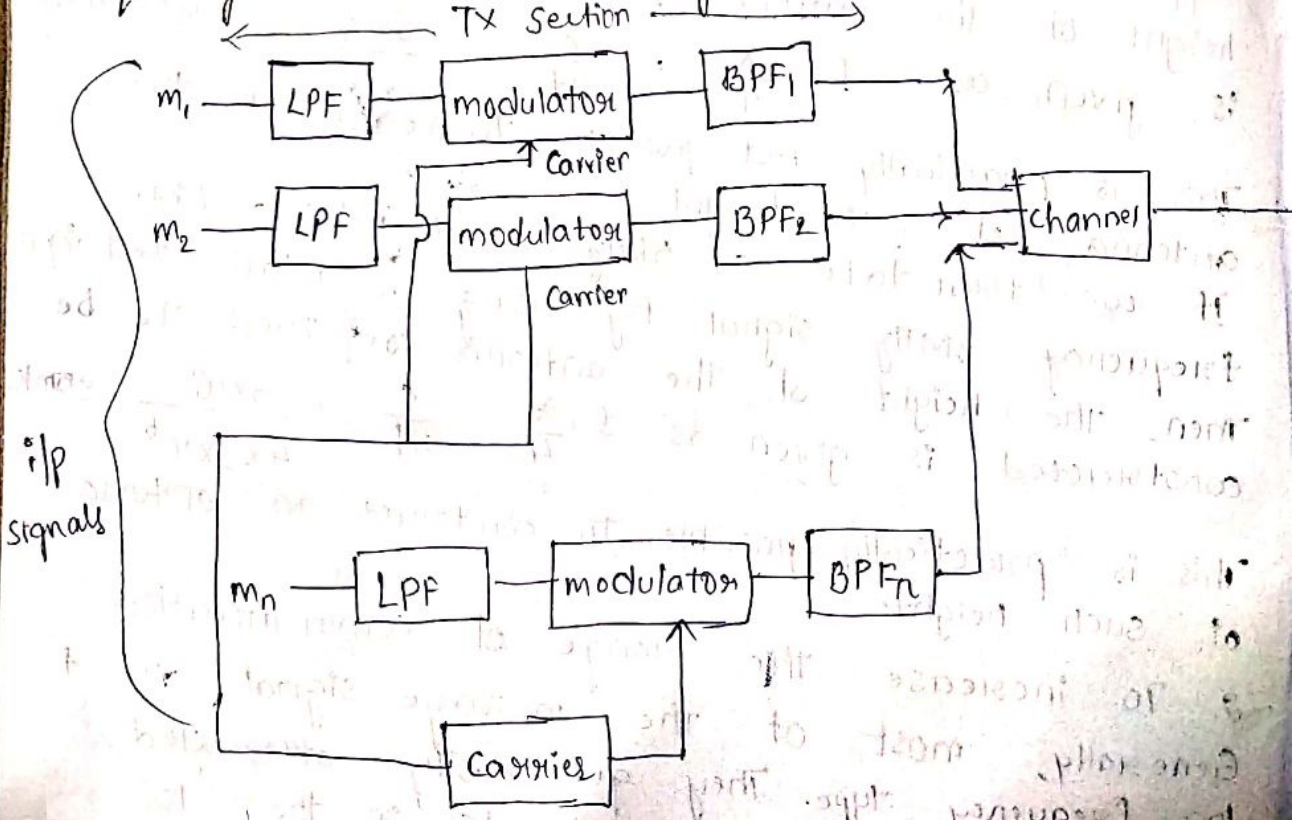 TX Section
m₁ LPF modulator BPF₁
Carrier
m₂ LPF modulator BPF₂ channel
Carrier
i/p
signals
mₙ LPF modulator BPFₙ
Carrier